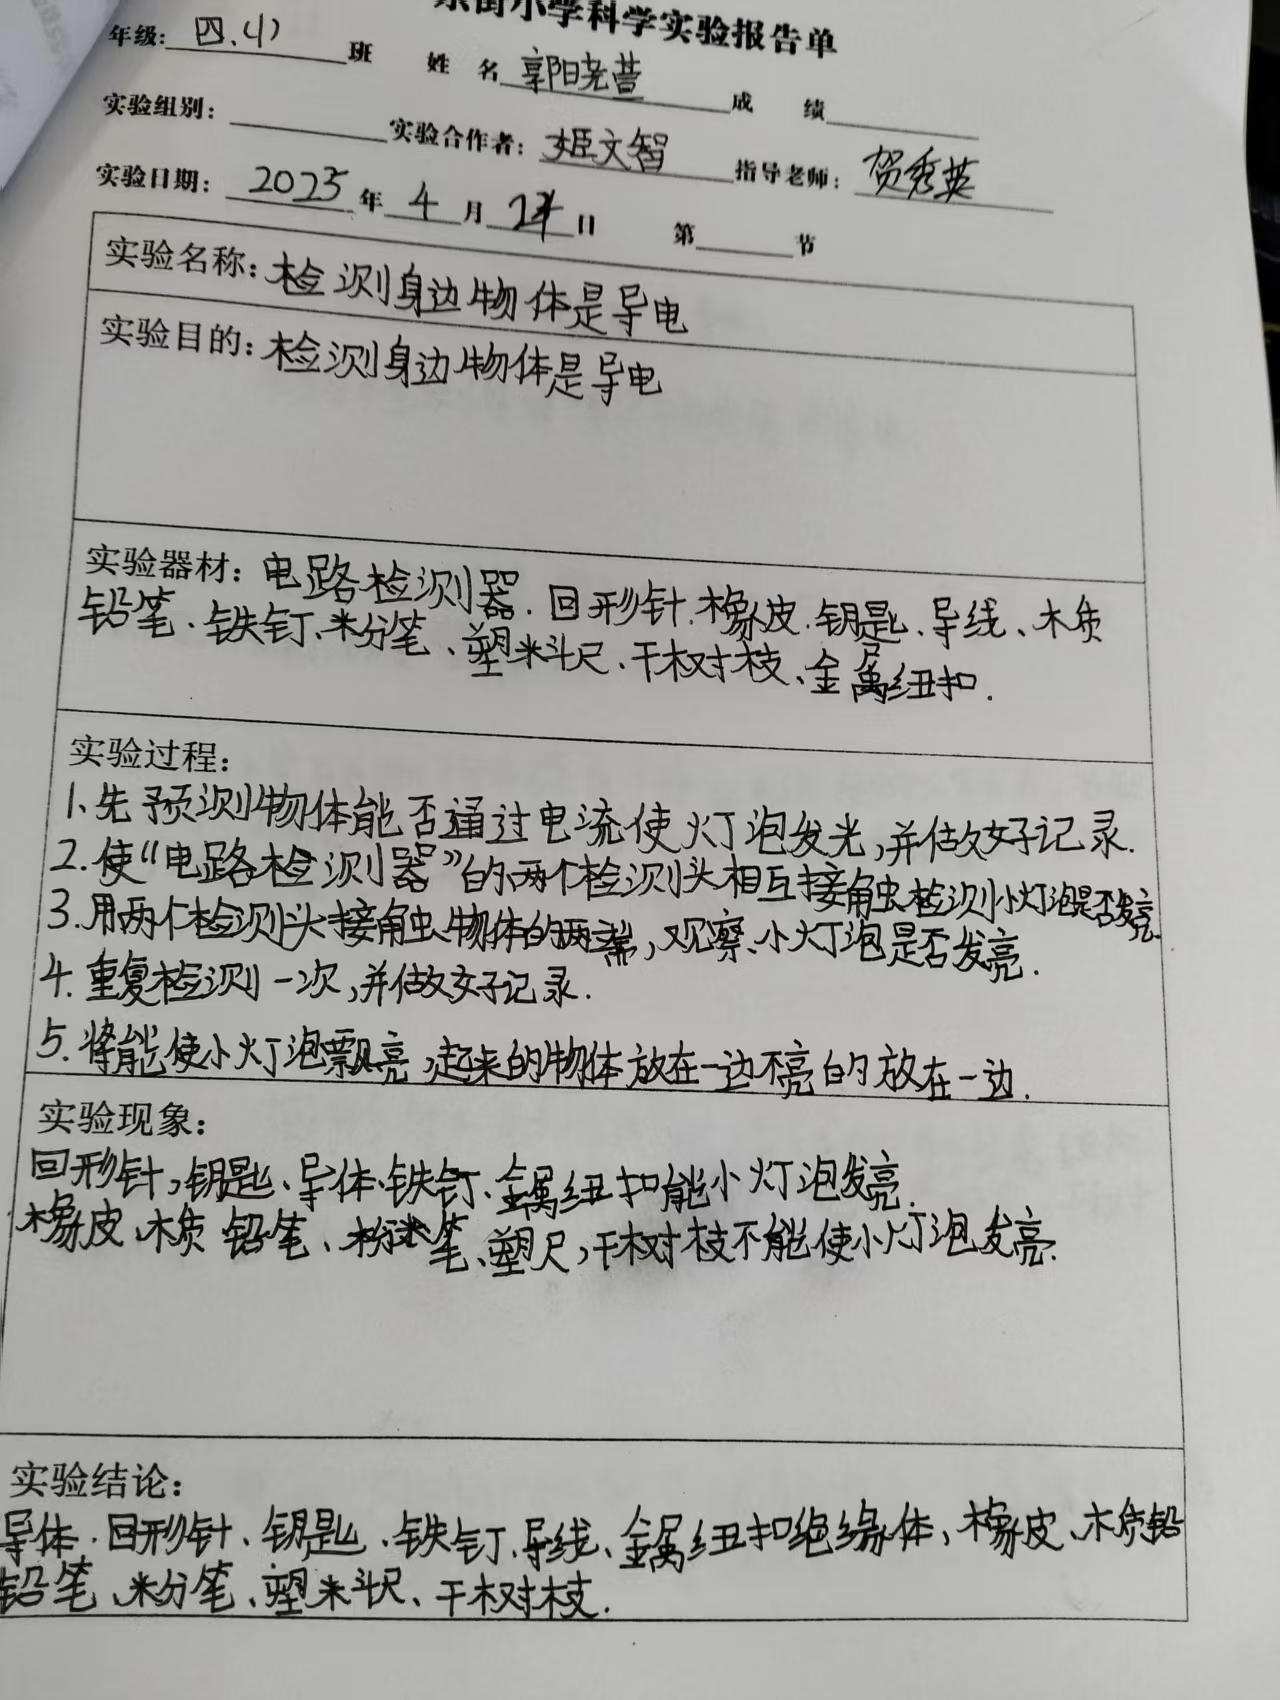 小学科学实验报告单
年级: 四.(1) 班 姓名 郭阳尧萱 成绩
实验组别: 实验合作者: 姬文智 指导老师: 贺秀英
实验日期: 2025 年 4 月 日 第 节
实验名称: 检测身边物体是导电
实验目的: 检测身边物体是导电
实验器材: 电路检测器.回形针.橡皮.钥匙.导线、木质
铅笔、铁钉、粉笔、塑料尺、干树枝、金属纽扣.
实验过程:
1.先预测物体能否通过电流使灯泡发光,并做好记录.
2.使“电路检测器”的两个检测头相互接触检测小灯泡是否发亮.
3.用两个检测头接触物体的两端,观察小灯泡是否发亮.
4.重复检测一次,并做好记录.
5.将能使小灯泡飘亮起来的物体放在一边不亮的放在一边.
实验现象:
回形针,钥匙、导体、铁钉、金属纽扣能小灯泡发亮.
橡皮、木质铅笔、粉笔、塑尺,干树枝不能使小灯泡发亮.
实验结论:
导体.回形针、钥匙、铁钉、导线、金属纽扣绝缘体,橡皮、木质铅
铅笔、粉笔、塑料尺、干树枝.